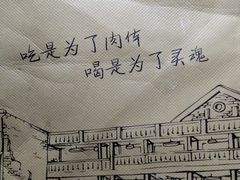 吃是为了肉体
喝是为了灵魂